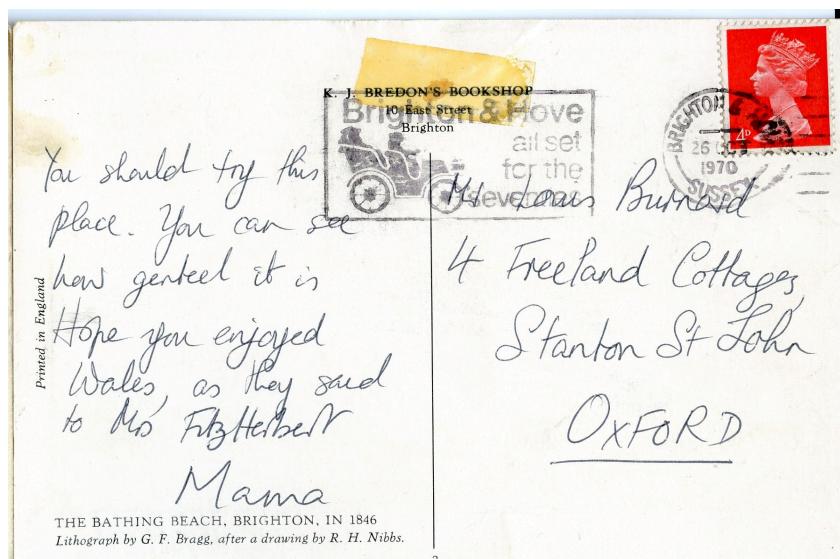 K. J. BREDON'S BOOKSHOP
10 East Street
Brighton
Brighton & Hove
all set
for the
seventies
BRIGHTON &
4P
26
1970
SUSSEX
You should try this
place. You can see
how genteel it is
Hope you enjoyed
Wales, as they said
to Mrs FitzHerbert
Mama
Mr Louis Burnard
4 Freeland Cottages,
Stanton St John
OXFORD
Printed in England
THE BATHING BEACH, BRIGHTON, IN 1846
Lithograph by G. F. Bragg, after a drawing by R. H. Nibbs.